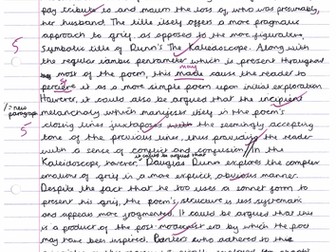 pay tribute to and mourn the loss of, who was presumably,
her husband. The title itself offers a more pragmatic
approach to grief, as opposed to the more figurative,
5 symbolic title of Dunn's The Kaleidoscope. Along with
the regular iambic pentameter which is present throughout
most of the poem, this made cause the reader to
perceive it as a more simple poem upon initial exploration.
However, it could also be argued that the incipient
new paragraph melancholy which manifests itself in the poem's
5 closing lines juxtaposes with the seemingly accepting
tone of the previous line, thus providing the reader
with a sense of conflict and confusion. // In the
it could be argued that
Kaleidoscope, however, Douglas Dunn explores the complex
emotions of grief in a more explicit, obvious manner.
Despite the fact that he too uses a sonnet form to
present his grief, the poem's structure is less systematic
and appears more fragmented. It could be argued that this
is a product of the post-modernist era by which the poet
may have been inspired.